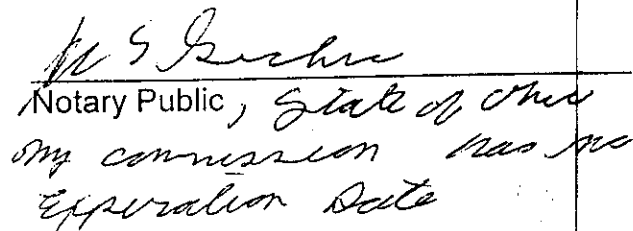 Notary Public, State of Ohio
my commission has no
Experation Date